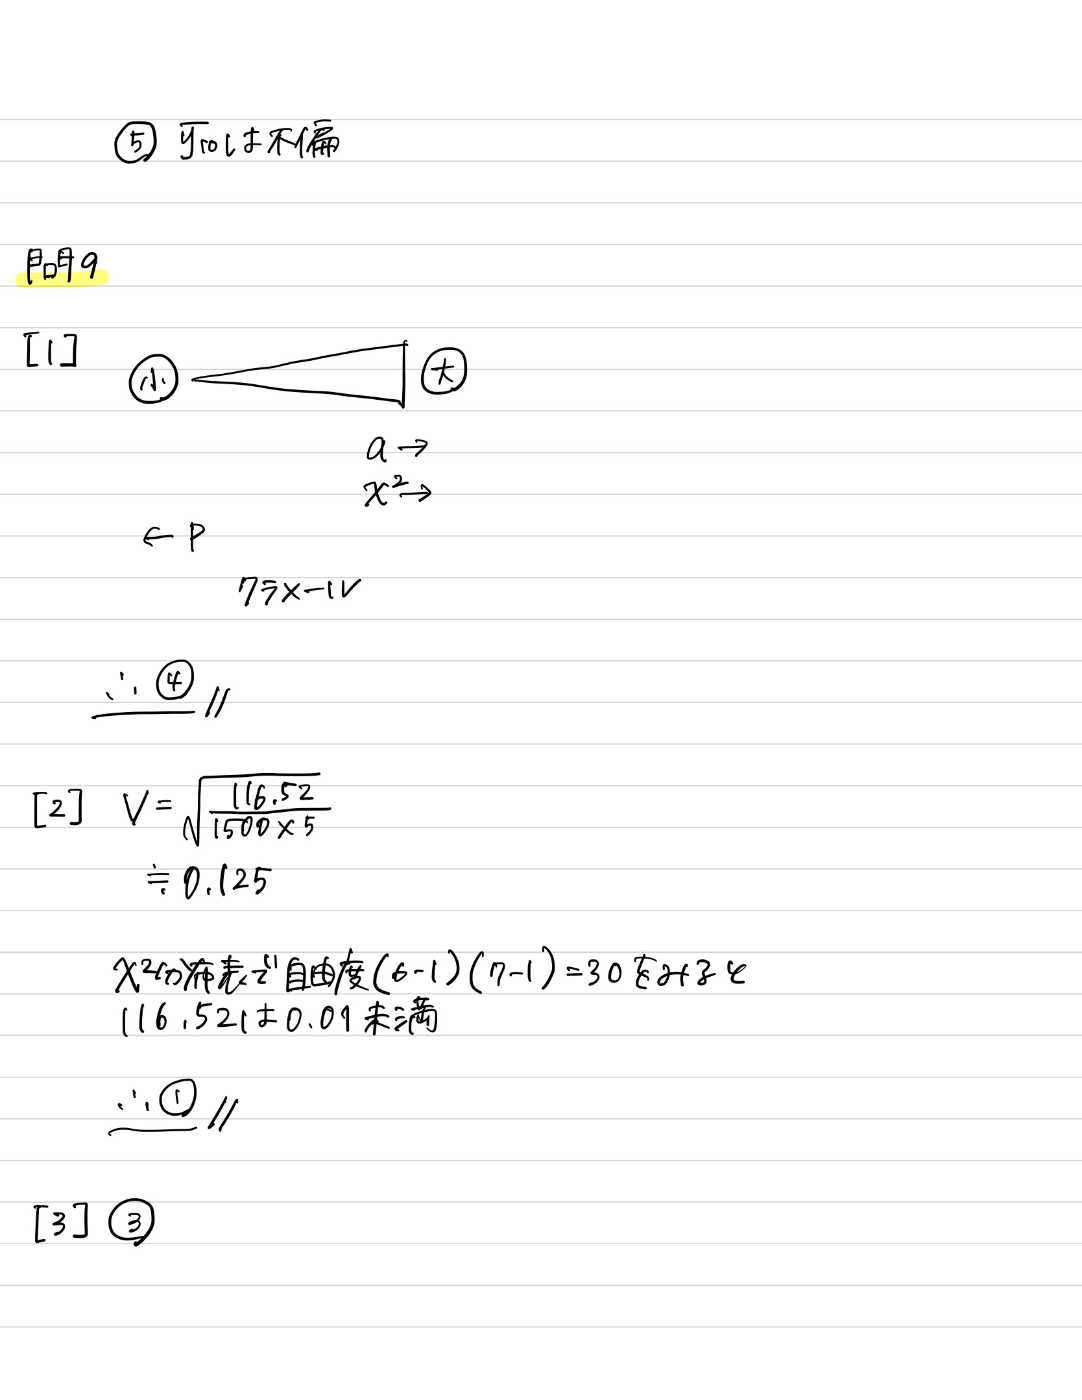 ⑤ ȳ₁₀₁は不偏
問9
[1]
小 大
a→
χ²→
←P
クラメールV
∴④//
[2] V=√(116.52/1500×5)
≒0.125
χ²分布表で自由度(6-1)(7-1)=30をみると
116.52は0.01未満
∴①//
[3]③